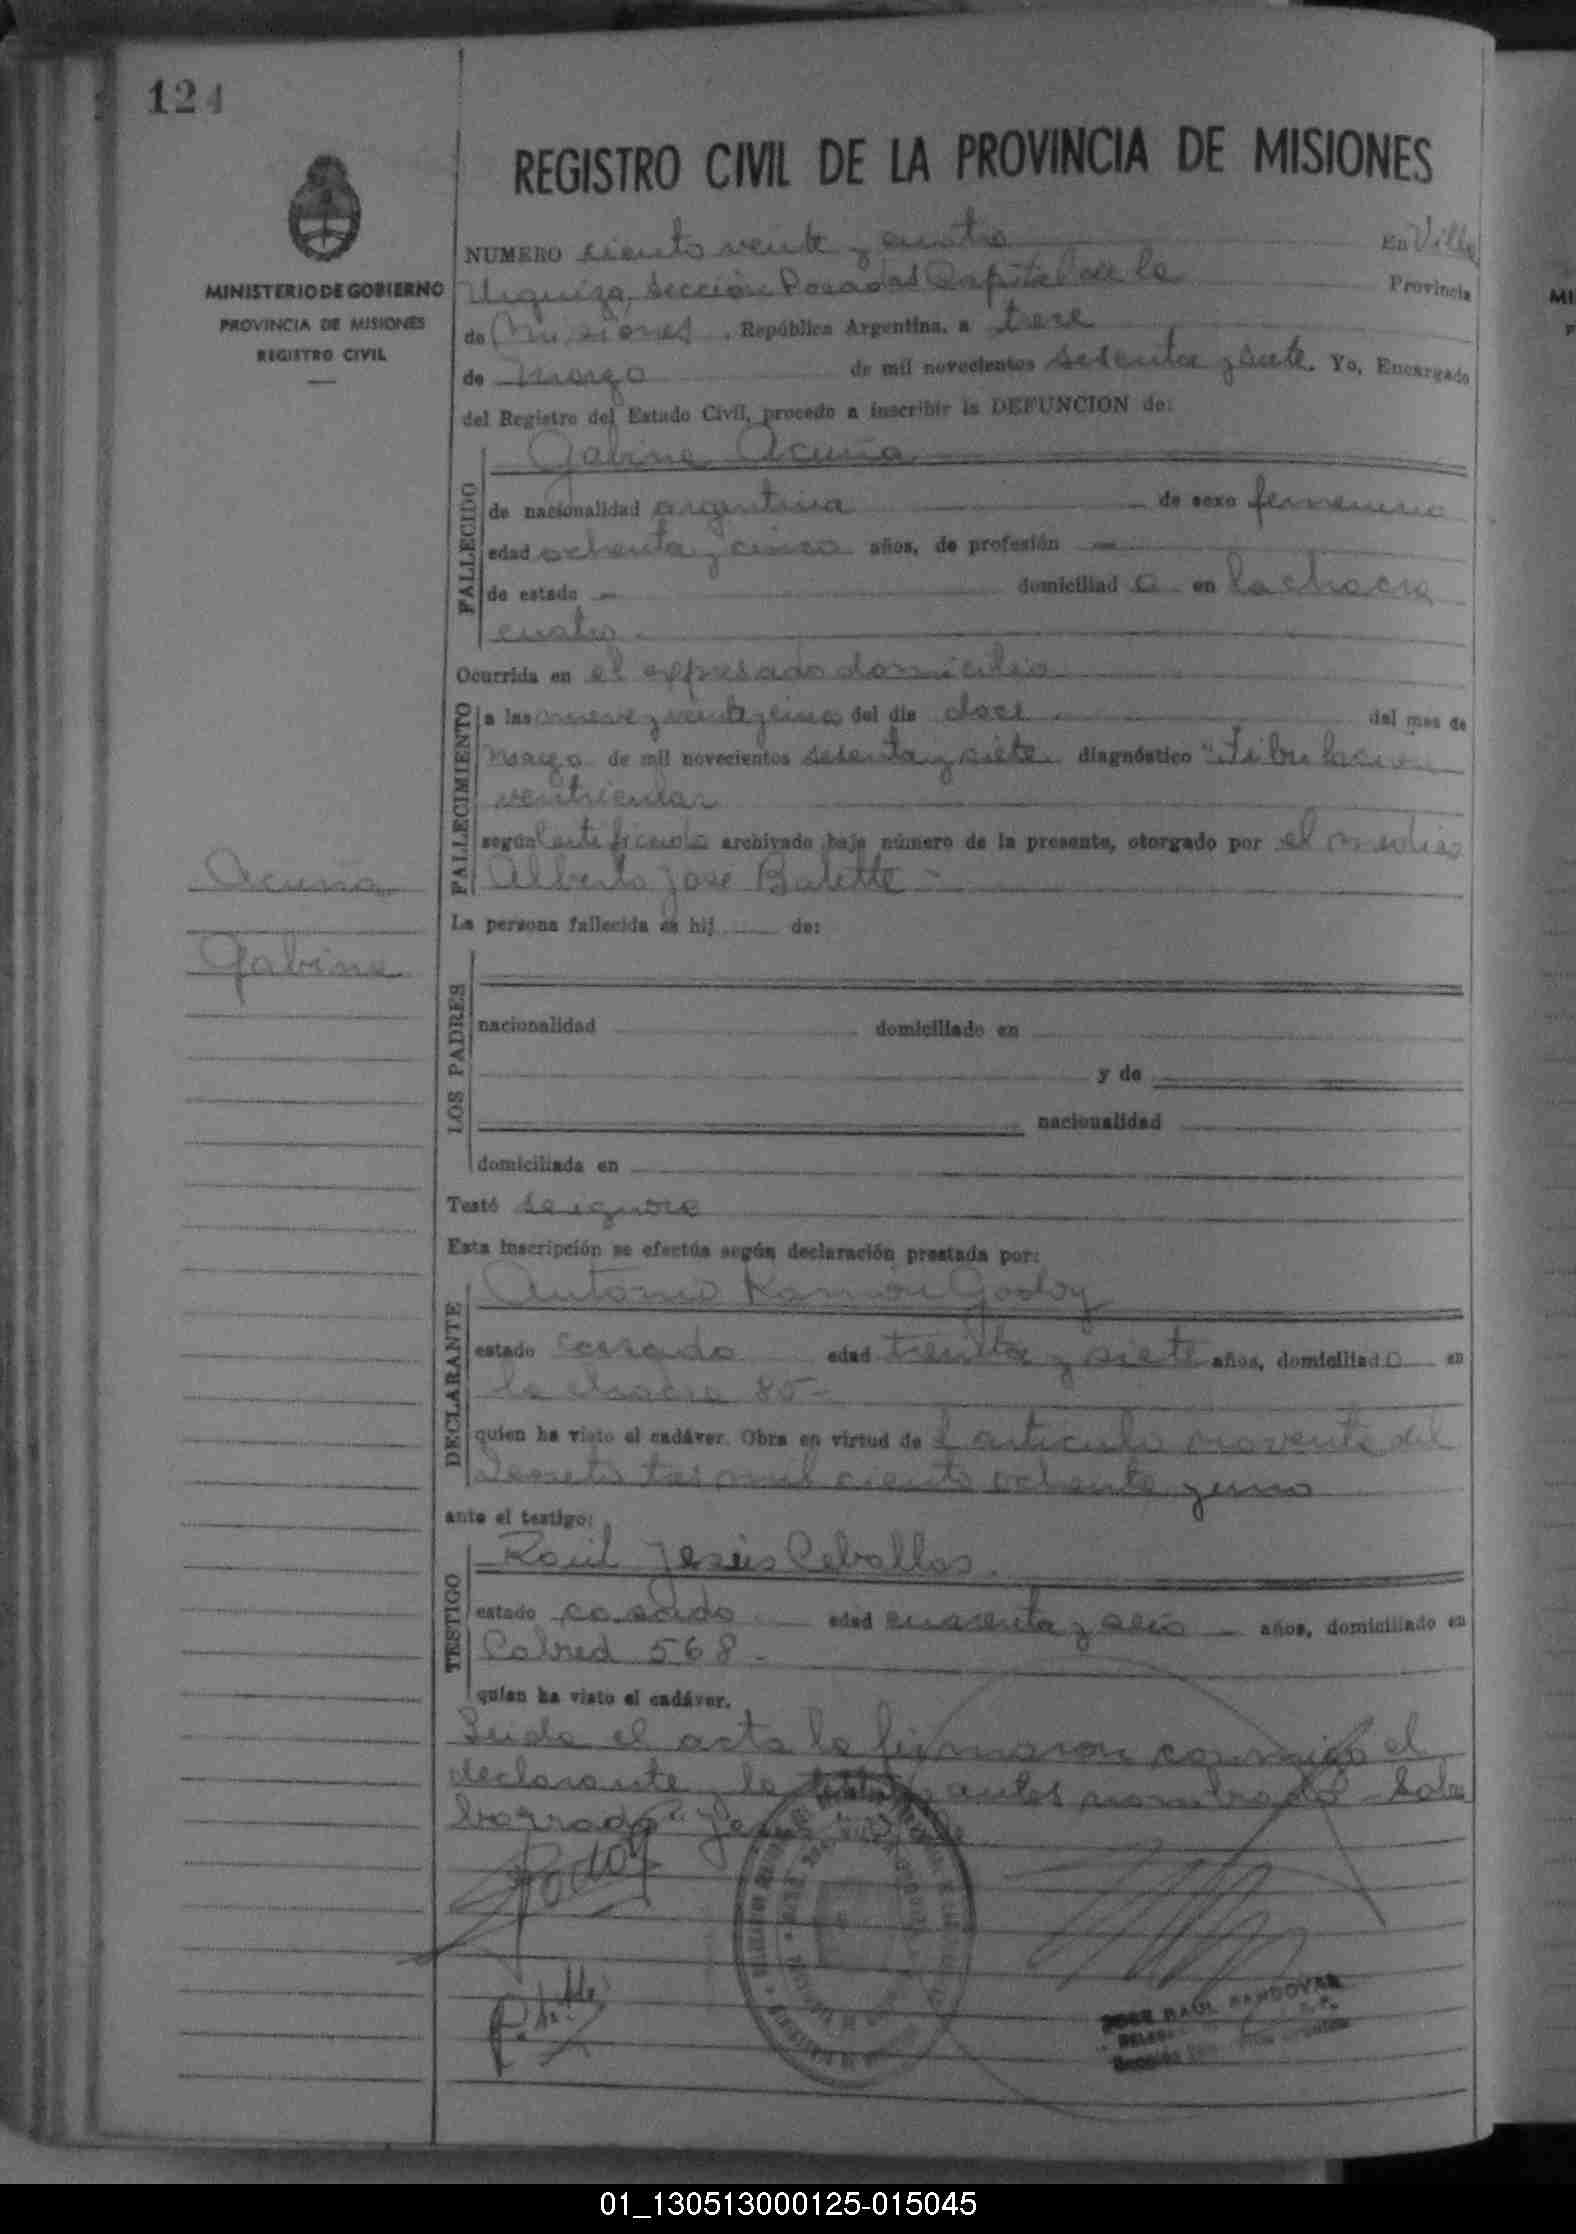 124
REGISTRO CIVIL DE LA PROVINCIA DE MISIONES
MINISTERIO DE GOBIERNO
PROVINCIA DE MISIONES
REGISTRO CIVIL
NUMERO ciento veinte y cuatro En Villa
Urquiza, Sección Posadas Capital de la Provincia
de Misiones, República Argentina, a trece
de Marzo de mil novecientos sesenta y siete. Yo, Encargado
del Registro del Estado Civil, procedo a inscribir la DEFUNCION de:
Gabina Acuña
FALLECIDO
de nacionalidad argentina de sexo femenino
edad ochenta y cinco años, de profesión —
de estado — domiciliad a en la chacra
cuatro.
Ocurrida en el expresado domicilio
FALLECIMIENTO
a las nueve y veinte y cinco del día doce del mes de
Marzo de mil novecientos sesenta y siete diagnóstico "Fibrilacion
ventricular
según Certificado archivado bajo número de la presente, otorgado por el medico
Alberto Jose Balette -
Acuña
Gabina
La persona fallecida es hij de:
LOS PADRES
nacionalidad domiciliado en
y de
nacionalidad
domiciliada en
Testó se ignora
Esta inscripción se efectúa según declaración prestada por:
Antonio Ramon Godoy
DECLARANTE
estado casado edad treinta y siete años, domiciliado en
la chacra 85-
quien ha visto el cadáver. Obra en virtud de l articulo noventa del
Decreto tres mil ciento ochenta y uno
ante el testigo:
Raúl Jesús Ceballos.
TESTIGO
estado casado edad cuarenta y seis años, domiciliado en
Cabred 568-
quien ha visto el cadáver.
Leida el acta la firmaron conmigo el
declarante y la testigo antes nombrado - Sobre
borrado "Jesus"
Godoy
JOSE RAUL SANDOVAL
01_130513000125-015045